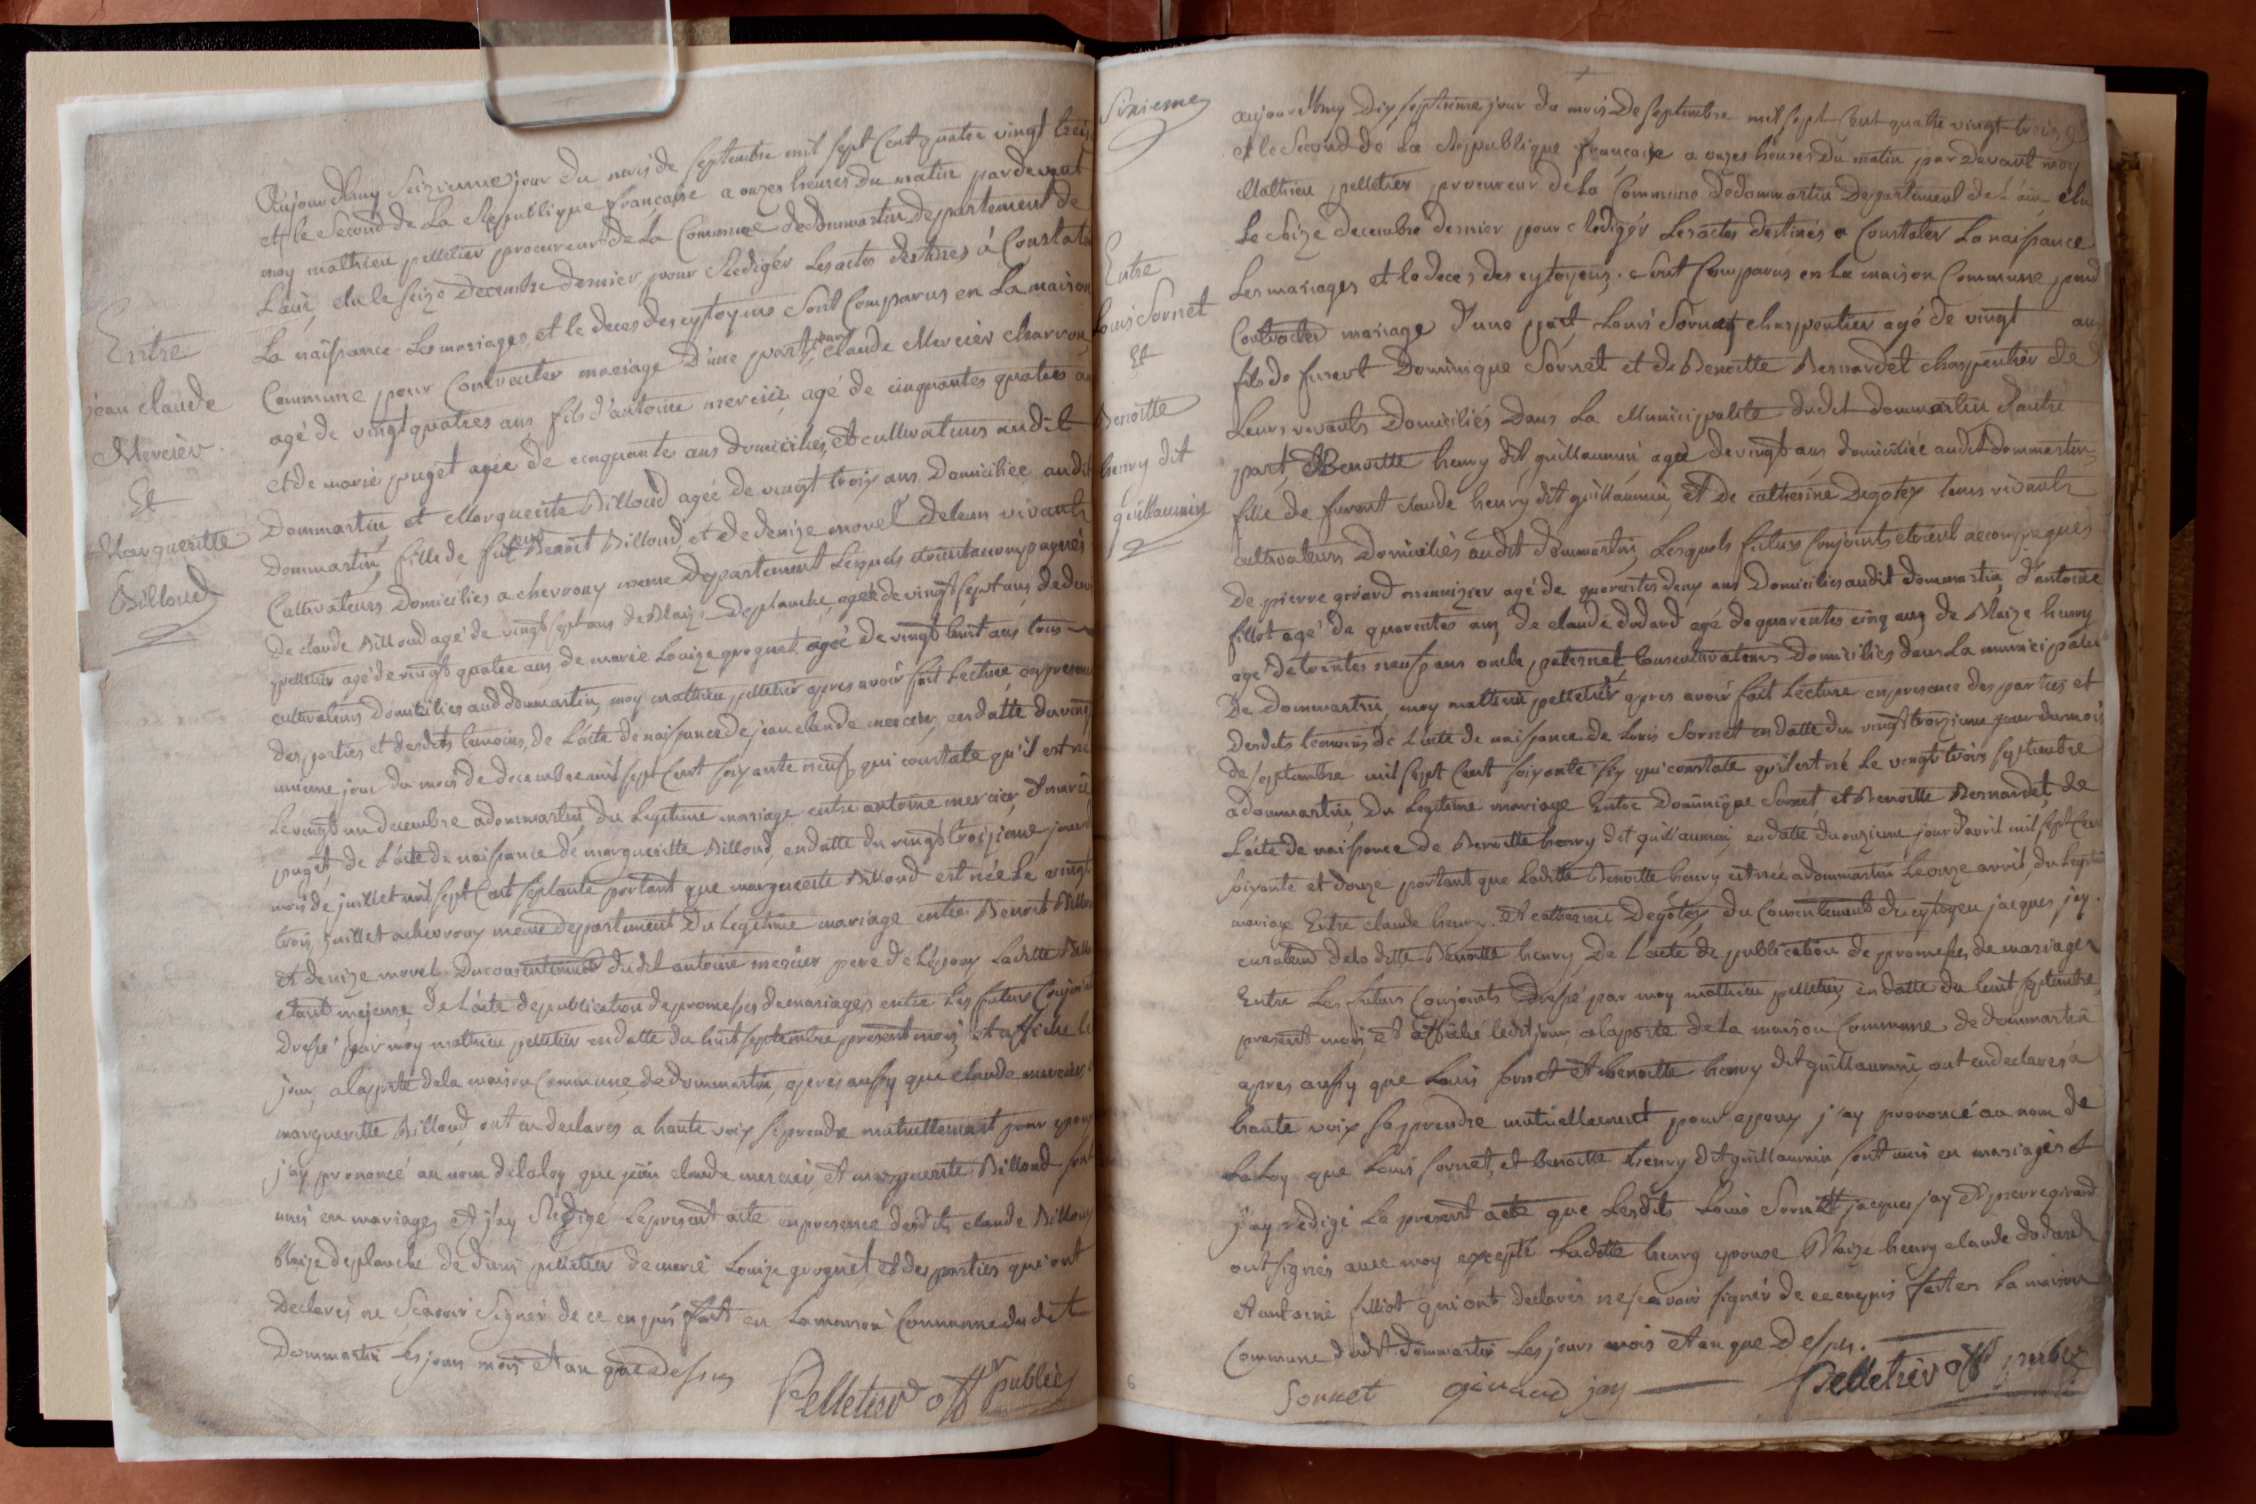 Entre
jean claude
Mercier
Et
Margueritte
Billoud
Aujourdhuy Seizieme jour du mois de Septembre mil sept Cent quatre vingt treize
et le Second de La Republique françaiSe a onzes heures Du matin pardevant
moy mathieu pelletier procureur de La Commune dedommartin departement de
L'ain, elu le Seize Decembre dernier pour Rediger Les actes destinés à Constater
La naissance Les mariages, et le deces des cytoyens Sont Comparus en La maison
Commune pour Contracter mariage D'une part, jean claude Mercier charron,
agé de vingt quatres ans fils d'antoine mercier, agé de cinquantes quatres ans
et de marie puget agée de cinquante ans domiciliés, et cultivateurs audit
Dommartin, et Margueritte Billoud agée de vingt troix ans Domiciliée audit
Dommartin, fille de feu Benoit Billoud et de denize morel De leur vivants
Cultivateurs Domiciliés a chevroux meme Departement Lesquels etoient accompagnés
De claude Billoud agé de vingt sept ans de Blaize Deplanche, agée de vingt sept ans de denis
pelletier agé de vingt quatre ans, de marie Louize groguet agée de vingt huit ans, tous
cultivateurs domiciliés aud dommartin, moy mathieu pelletier apres avoir fait Lecture en presence
des parties et desdits temoins, de L'acte de naissance de jean claude mercier, en datte du vingt
unieme jour du mois de decembre mil sept Cent soixante neuf, qui constate qu'il est né
Le vingt un decembre adommartin, du Legitime mariage entre antoine mercier, et marie
puget, de L'acte de naissance de margueritte Billoud, en datte du vingt troizieme jour du
mois de juillet mil sept Cent septante portant que margueritte Billoud est née Le vingt
trois juillet achevroux meme departement Du Legitime mariage entre Benoit Billoud
et denize morel Du consentement dudit antoine mercier pere de L'epoux Laditte Billoud
etant majeure, de L'acte de publication de promesses de mariages entre Les futurs Conjoints
Dressé par moy mathieu pelletier en datte du huit septembre present mois, et affiché le
jour, a la porte de la maison Commune de dommartin, apres aussy que claude mercier et
margueritte Billoud, ont en declarés a haute voix se prendre mutuellement pour epoux
j'ay prononcé au nom de la loy que jean claude mercier et margueritte Billoud sont
unis en mariages, et j'ay Redigé Le present acte en presence desdits claude Billoud
blaize deplanche de denis pelletier de marie Louize groguet et des parties qui ont
Declarés ne Scavoir Signer de ce enquis fait en La maison Commune du dit
Dommartin Les jours mois et an que dessus
Pelletier off public
Sixieme
Entre
Louis Sornet
Et
Benoitte
henry dit
guillaumin
aujourdhuy Dix septieme jour du mois De septembre mil sept Cent quatre vingt treize
et le Second de La Republique françaiSe a onzes heures Du matin par devant moy
Mathieu pelletier procureur de La Commune Dedommartin Departement de L'ain elu
Le Seize decembre dernier pour Rediger Les actes destinés a Constater La naissance
Les mariages et le deces des cytoyens, Sont Comparus en La maison Commune pour
Contracter mariage D'une part, Louis Sornet charpentier agé de vingt ans
fils de furent Dominique Sornet et de Benoitte Bernardet charpentier de
Leurs vivants Domiciliés Dans La Municipalité dudit dommartin, d'autre
part, Benoitte henry dit guillaumin, agée de vingt ans domiciliée audit dommartin
fille de furent claude henry dit guillaumin, et De catherine Degotex leurs vivants
cultivateurs Domiciliés audit dommartin, Lesquels futurs Conjoints etoient accompagnés
De pierre girard menuizier agé de quarentes deux ans Domiciliés audit dommartin, d'antoine
fillot agé de quarentes ans, de claude dodard agé de quarentes cinq ans, de Blaize henry
agé de trentes neuf ans oncle paternel tous cultivateurs Domiciliés dans La municipalité
De dommartin, moy mathieu pelletier apres avoir fait Lecture en presence des parties et
desdits temoins de L'acte de naissance de Louis Sornet en datte du vingt troizieme jour du mois
de septembre mil sept Cent soixante six qui constate qu'il est né Le vingt trois septembre
adommartin, Du Legitime mariage Entre Dominique Sornet, et Benoitte Bernardet, de
L'acte de naissance de Benoitte henry dit guillaumin, en datte du onzieme jour d'avril mil sept Cent
soixante et douze portant que Laditte Benoitte henry est née adommartin Le onze avril, du Legitime
mariage Entre claude henry et catherine Degotex, du Consentement du cytoyen jacques jay
curateur de la ditte Benoitte henry, De L'acte de publication de promesses de mariages
Entre Les futurs Conjoints Dressé par moy mathieu pelletier en datte du huit septembre
present mois, et affiché ledit jour a la porte de la maison Commune de dommartin
apres aussy que Louis Sornet et benoitte henry dit guillaumin, ont en declarés a
haute voix se prendre mutuellement pour epoux j'ay prononcé au nom de
La Loy que Louis Sornet, et benoitte henry dit guillaumin sont unis en mariages et
j'ay redigé Le present acte que Lesdits Louis Sornet jacques jay et pierre girard
ont signés avec moy excepté Laditte henry epouse Blaize henry claude dodard
et antoine filliot qui ont declarés ne scavoir signer de ce enquis fait en La maison
Commune dudit dommartin Les jours mois et an que dessus.
Sornet girard jay Pelletier off public
6